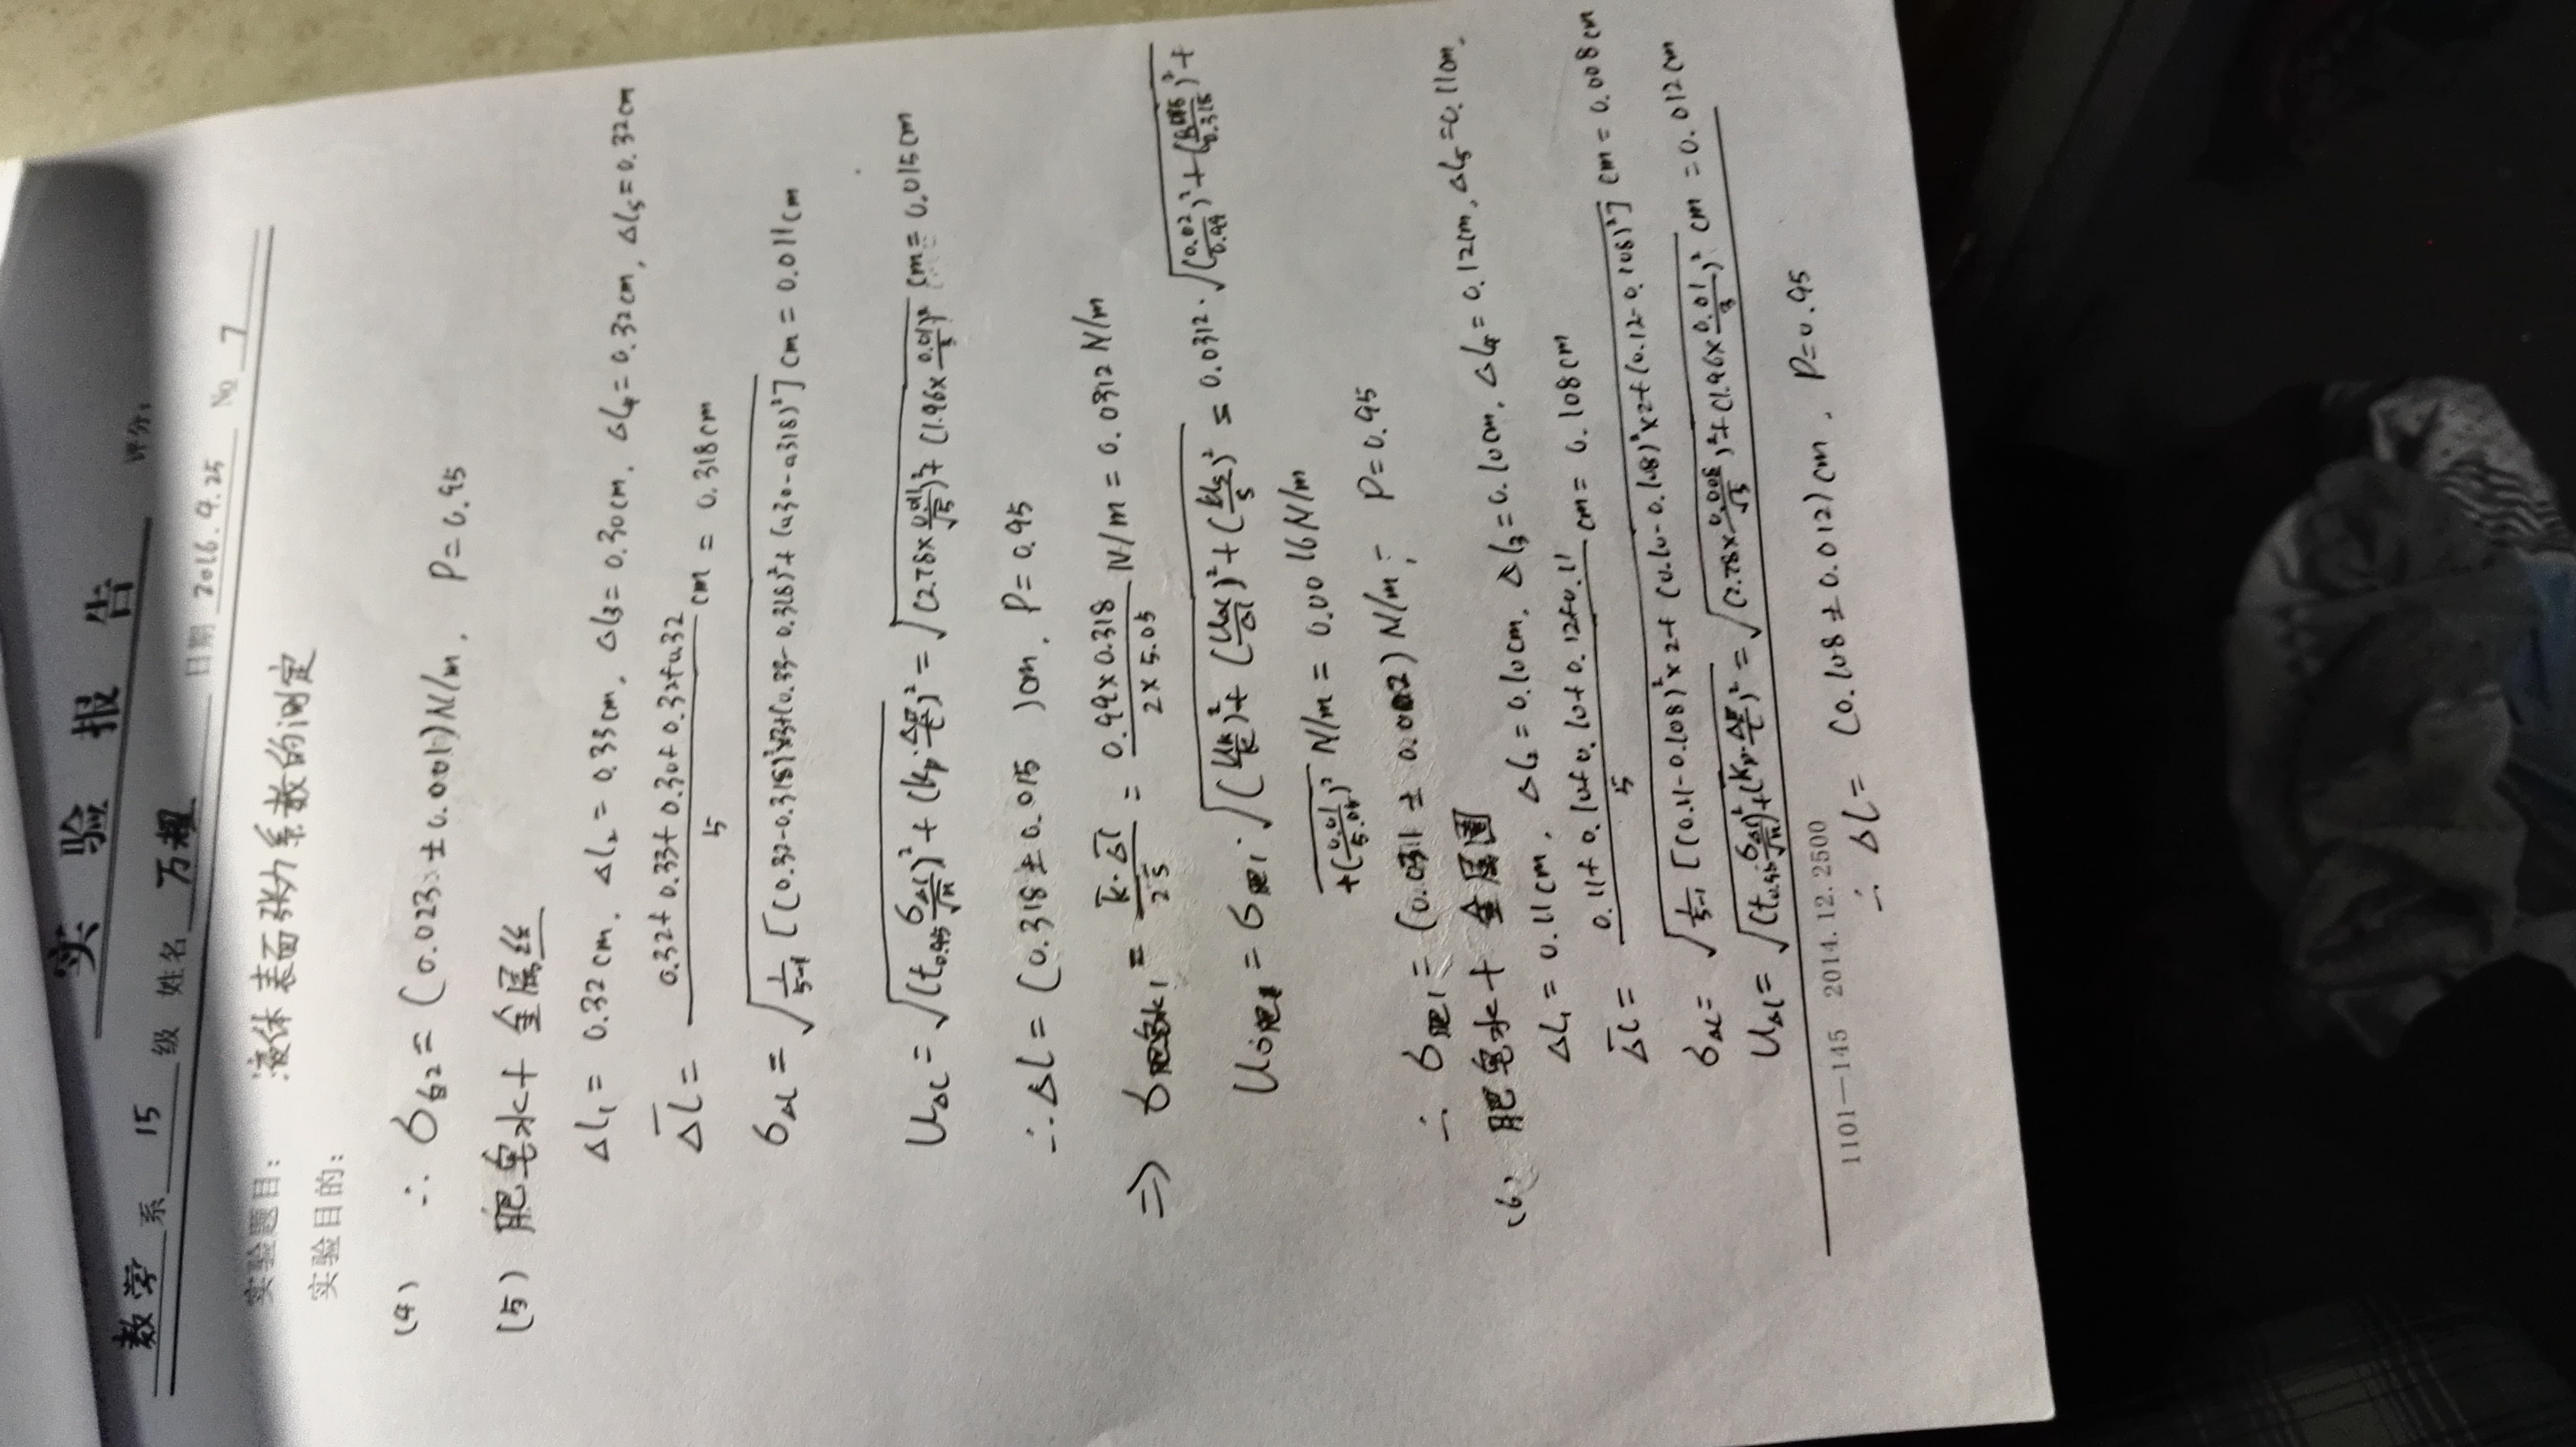 实 验 报 告
评分:
数学 系 15 级 姓名 万耀 日期 2016.9.25 No 7
实验题目: 液体表面张力系数的测定
实验目的:
(4) ∴ σ合2 = (0.023 ± 0.001) N/m, P=0.95
(5) 肥皂水 + 金属丝
Δl₁ = 0.32cm, Δl₂ = 0.33cm, Δl₃ = 0.30cm, Δl₄ = 0.32cm, Δl₅ = 0.32cm
Δl̅ = (0.32+0.33+0.30+0.32+0.32)/5 cm = 0.318cm
σΔl = √(1/(5-1) [(0.32-0.318)²×3+(0.33-0.318)²+(0.30-0.318)²]) cm = 0.011cm
UΔl = √((t0.95 σΔl/√n)² + (kp·ΔB/C)²) = √((2.78×0.011/√5)²+(1.96×0.01/3)²) cm = 0.015cm
∴ Δl = (0.318 ± 0.015 )cm, P=0.95
⇒ σ肥皂水1 = k̅·Δl̅/2s = 0.99×0.318/2×5.05 N/m = 0.0312 N/m
Uσ肥1 = σ肥1·√((Uk/k)²+(UΔl/Δl)²+(Us/s)²) = 0.0312·√((0.02/0.99)²+(0.015/0.318)²+
+(0.01/5.05)²) N/m = 0.0016N/m
∴ σ肥1 = (0.0311 ± 0.002) N/m; P=0.95
(6) 肥皂水 + 金属圈
Δl₁ = 0.11cm, Δl₂ = 0.10cm, Δl₃=0.10cm, Δl₄=0.12cm, Δl₅=0.11cm,
Δl̅ = (0.11+0.10+0.10+0.12+0.11)/5 cm = 0.108cm
σΔl = √(1/(5-1) [(0.11-0.108)²×2+(0.10-0.108)²×2+(0.12-0.108)²]) cm = 0.008cm
UΔl = √((t0.95 σΔl/√n)²+(kp·ΔB/C)²) = √((2.78×0.008/√5)²+(1.96×0.01/3)²) cm = 0.012cm
1101—145 2014.12.2500
∴ Δl = (0.108 ± 0.012)cm, P=0.95